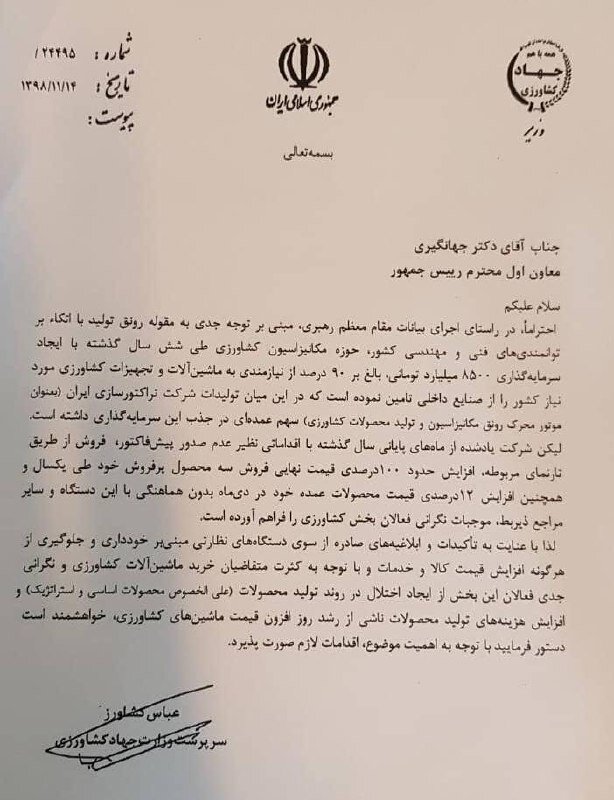 شماره: ۲۴۴۹۵/
تاریخ: ۱۳۹۸/۱۱/۱۴
پیوست:
جمهوری اسلامی ایران
همه با هم
جهاد
کشاورزی
وزیر
بسمه‌تعالی
جناب آقای دکتر جهانگیری
معاون اول محترم رییس جمهور
سلام علیکم
احتراماً، در راستای اجرای بیانات مقام معظم رهبری، مبنی بر توجه جدی به مقوله رونق تولید با اتکاء بر
توانمندی‌های فنی و مهندسی کشور، حوزه مکانیزاسیون کشاورزی طی شش سال گذشته با ایجاد
سرمایه‌گذاری ۸۵۰۰ میلیارد تومانی، بالغ بر ۹۰ درصد از نیازمندی به ماشین‌آلات و تجهیزات کشاورزی مورد
نیاز کشور را از صنایع داخلی تامین نموده است که در این میان تولیدات شرکت تراکتورسازی ایران (بعنوان
موتور محرک رونق مکانیزاسیون و تولید محصولات کشاورزی) سهم عمده‌ای در جذب این سرمایه‌گذاری داشته است.
لیکن شرکت یادشده از ماه‌های پایانی سال گذشته با اقداماتی نظیر عدم صدور پیش‌فاکتور، فروش از طریق
تارنمای مربوطه، افزایش حدود ۱۰۰درصدی قیمت نهایی فروش سه محصول پرفروش خود طی یکسال و
همچنین افزایش ۱۲درصدی قیمت محصولات عمده خود در دی‌ماه بدون هماهنگی با این دستگاه و سایر
مراجع ذیربط، موجبات نگرانی فعالان بخش کشاورزی را فراهم آورده است.
لذا با عنایت به تأکیدات و ابلاغیه‌های صادره از سوی دستگاه‌های نظارتی مبنی‌بر خودداری و جلوگیری از
هرگونه افزایش قیمت کالا و خدمات و با توجه به کثرت متقاضیان خرید ماشین‌آلات کشاورزی و نگرانی
جدی فعالان این بخش از ایجاد اختلال در روند تولید محصولات (علی الخصوص محصولات اساسی و استراتژیک) و
افزایش هزینه‌های تولید محصولات ناشی از رشد روز افزون قیمت ماشین‌های کشاورزی، خواهشمند است
دستور فرمایید با توجه به اهمیت موضوع، اقدامات لازم صورت پذیرد.
عباس کشاورز
سرپرست وزارت جهاد کشاورزی